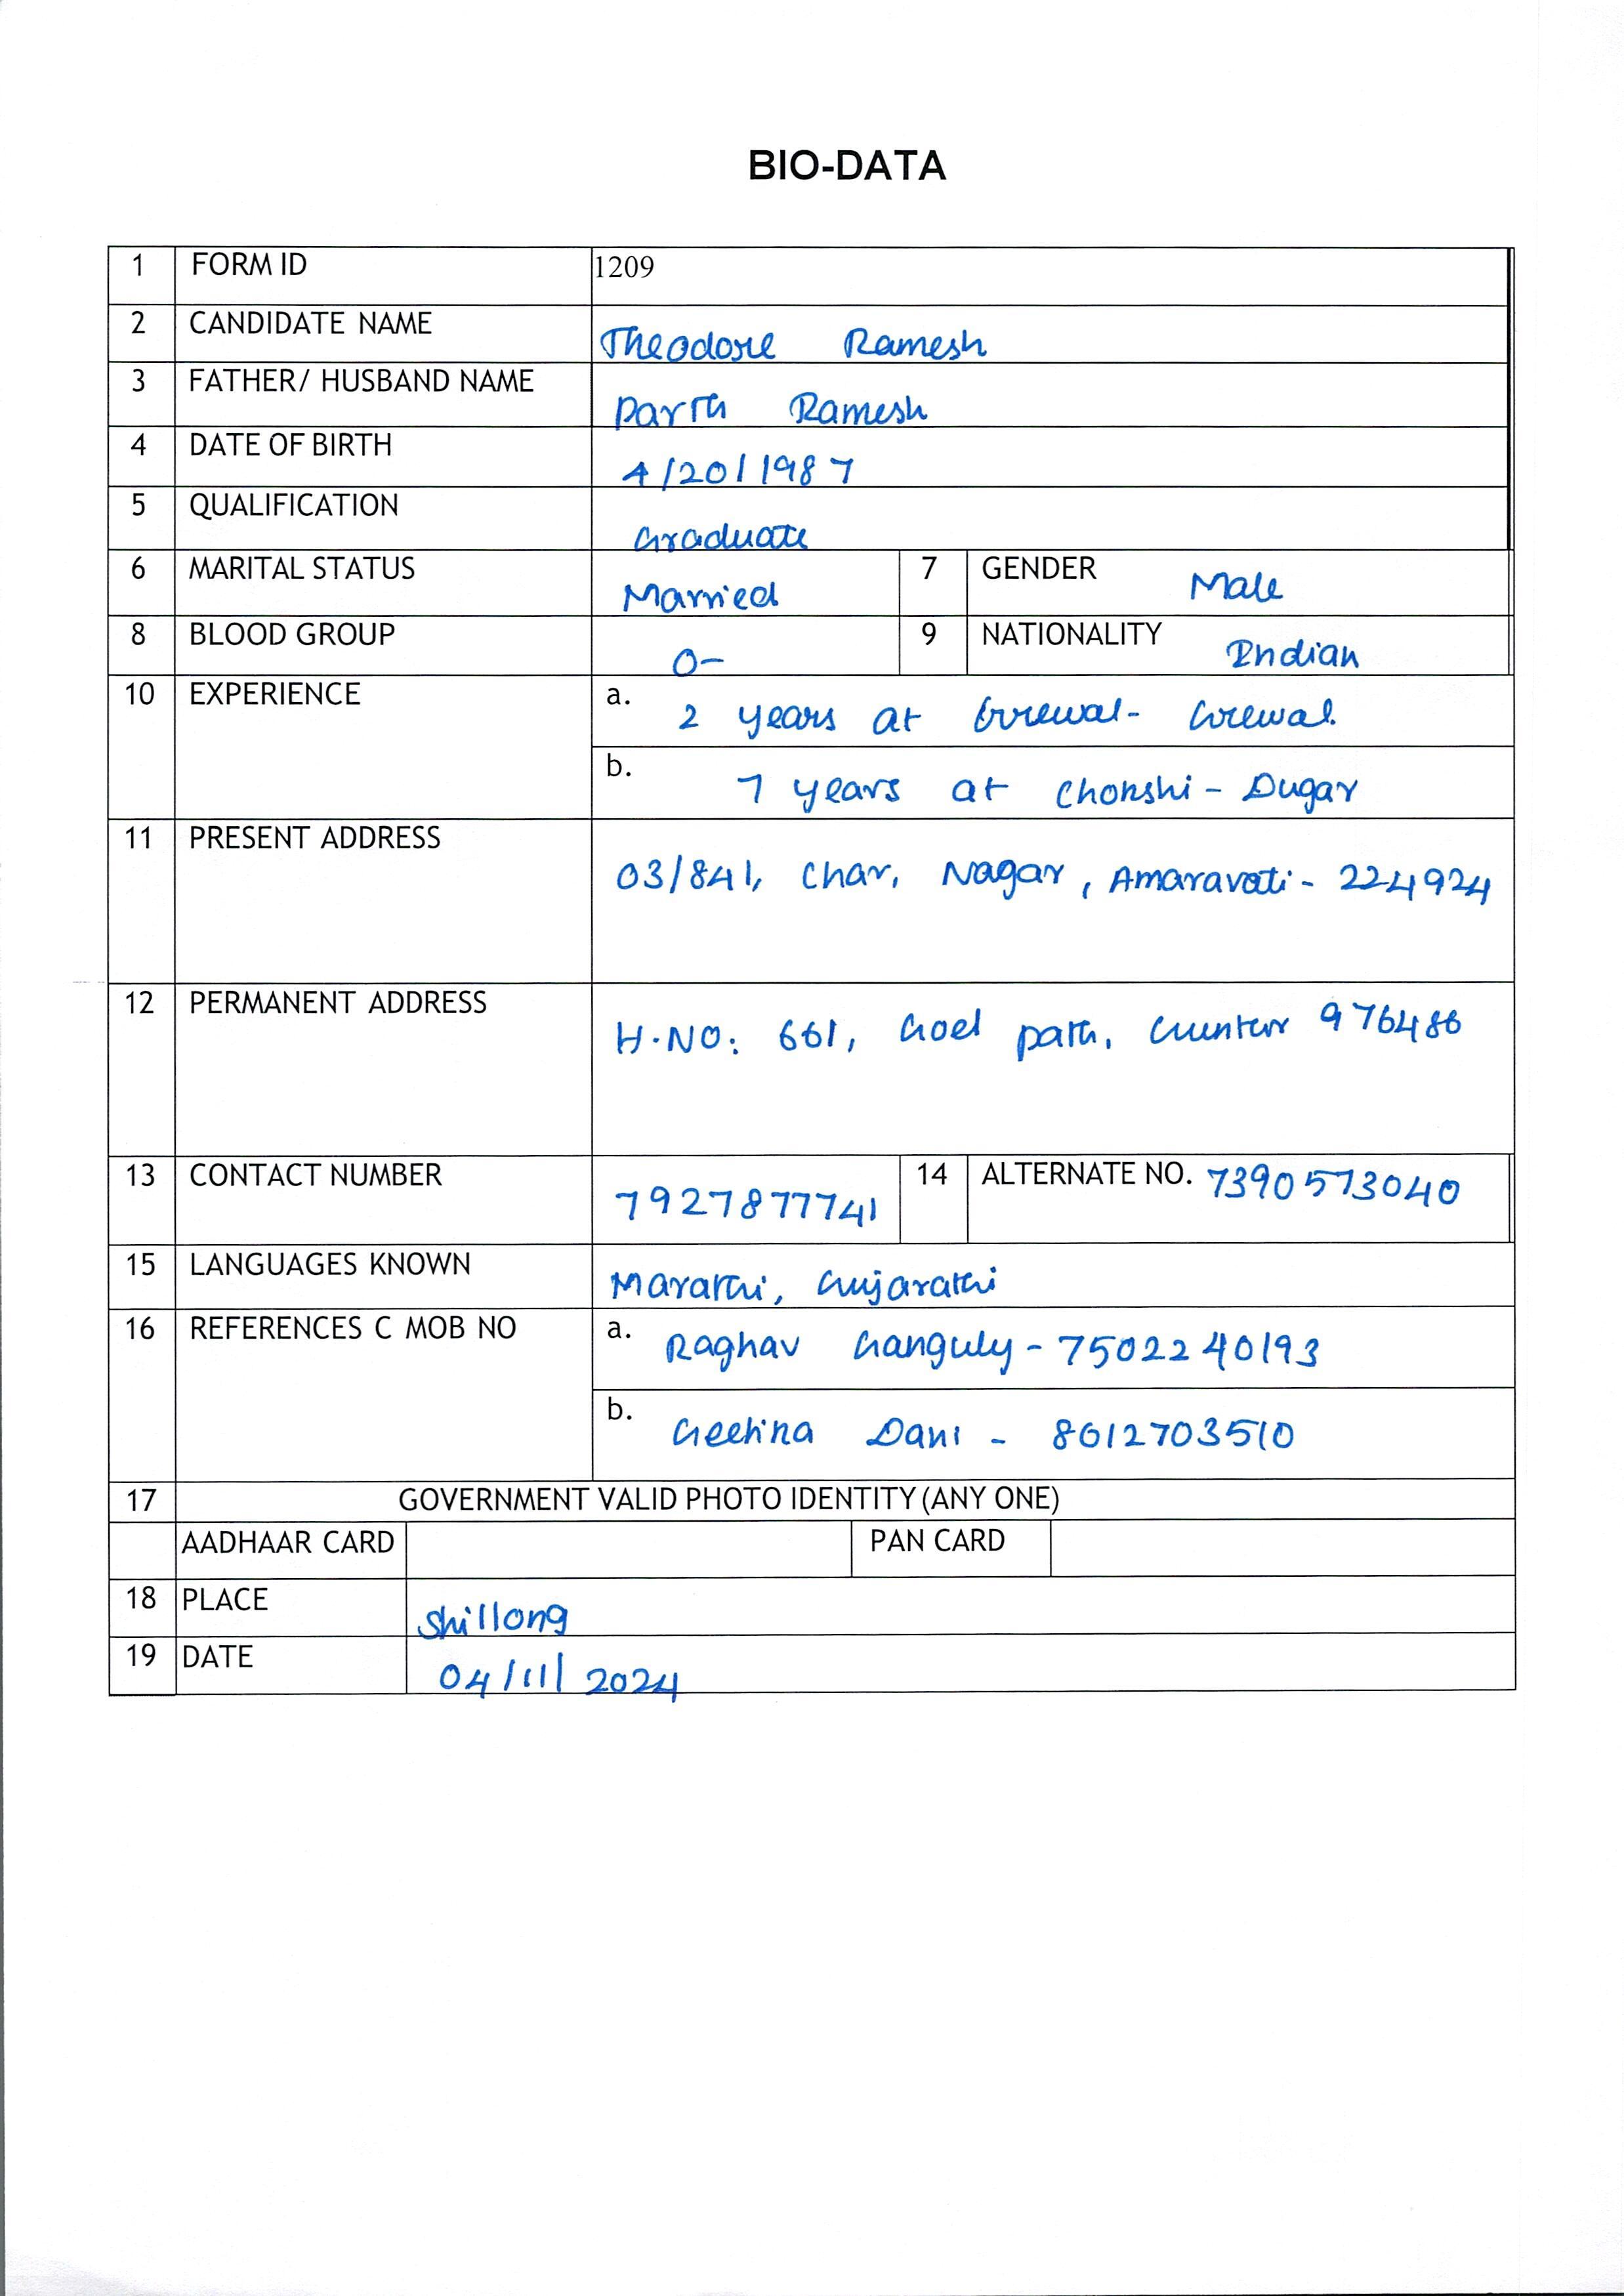 BIO-DATA
1 FORM ID 1209
2 CANDIDATE NAME Theodore Ramesh
3 FATHER/ HUSBAND NAME Parth Ramesh
4 DATE OF BIRTH 4/20/1987
5 QUALIFICATION Graduate
6 MARITAL STATUS Married 7 GENDER Male
8 BLOOD GROUP O- 9 NATIONALITY Indian
10 EXPERIENCE a. 2 years at Grewal- Grewal.
b. 7 years at Chokshi - Dugar
11 PRESENT ADDRESS 03/841, Char, Nagar, Amaravati - 224924
12 PERMANENT ADDRESS H.NO: 661, Goel path, Guntur 976486
13 CONTACT NUMBER 7927877741 14 ALTERNATE NO. 7390573040
15 LANGUAGES KNOWN Marathi, Gujarathi
16 REFERENCES C MOB NO a. Raghav Ganguly - 7502240193
b. Dani - 8612703510
17 GOVERNMENT VALID PHOTO IDENTITY (ANY ONE)
AADHAAR CARD PAN CARD
18 PLACE Shillong
19 DATE 04/11/2024